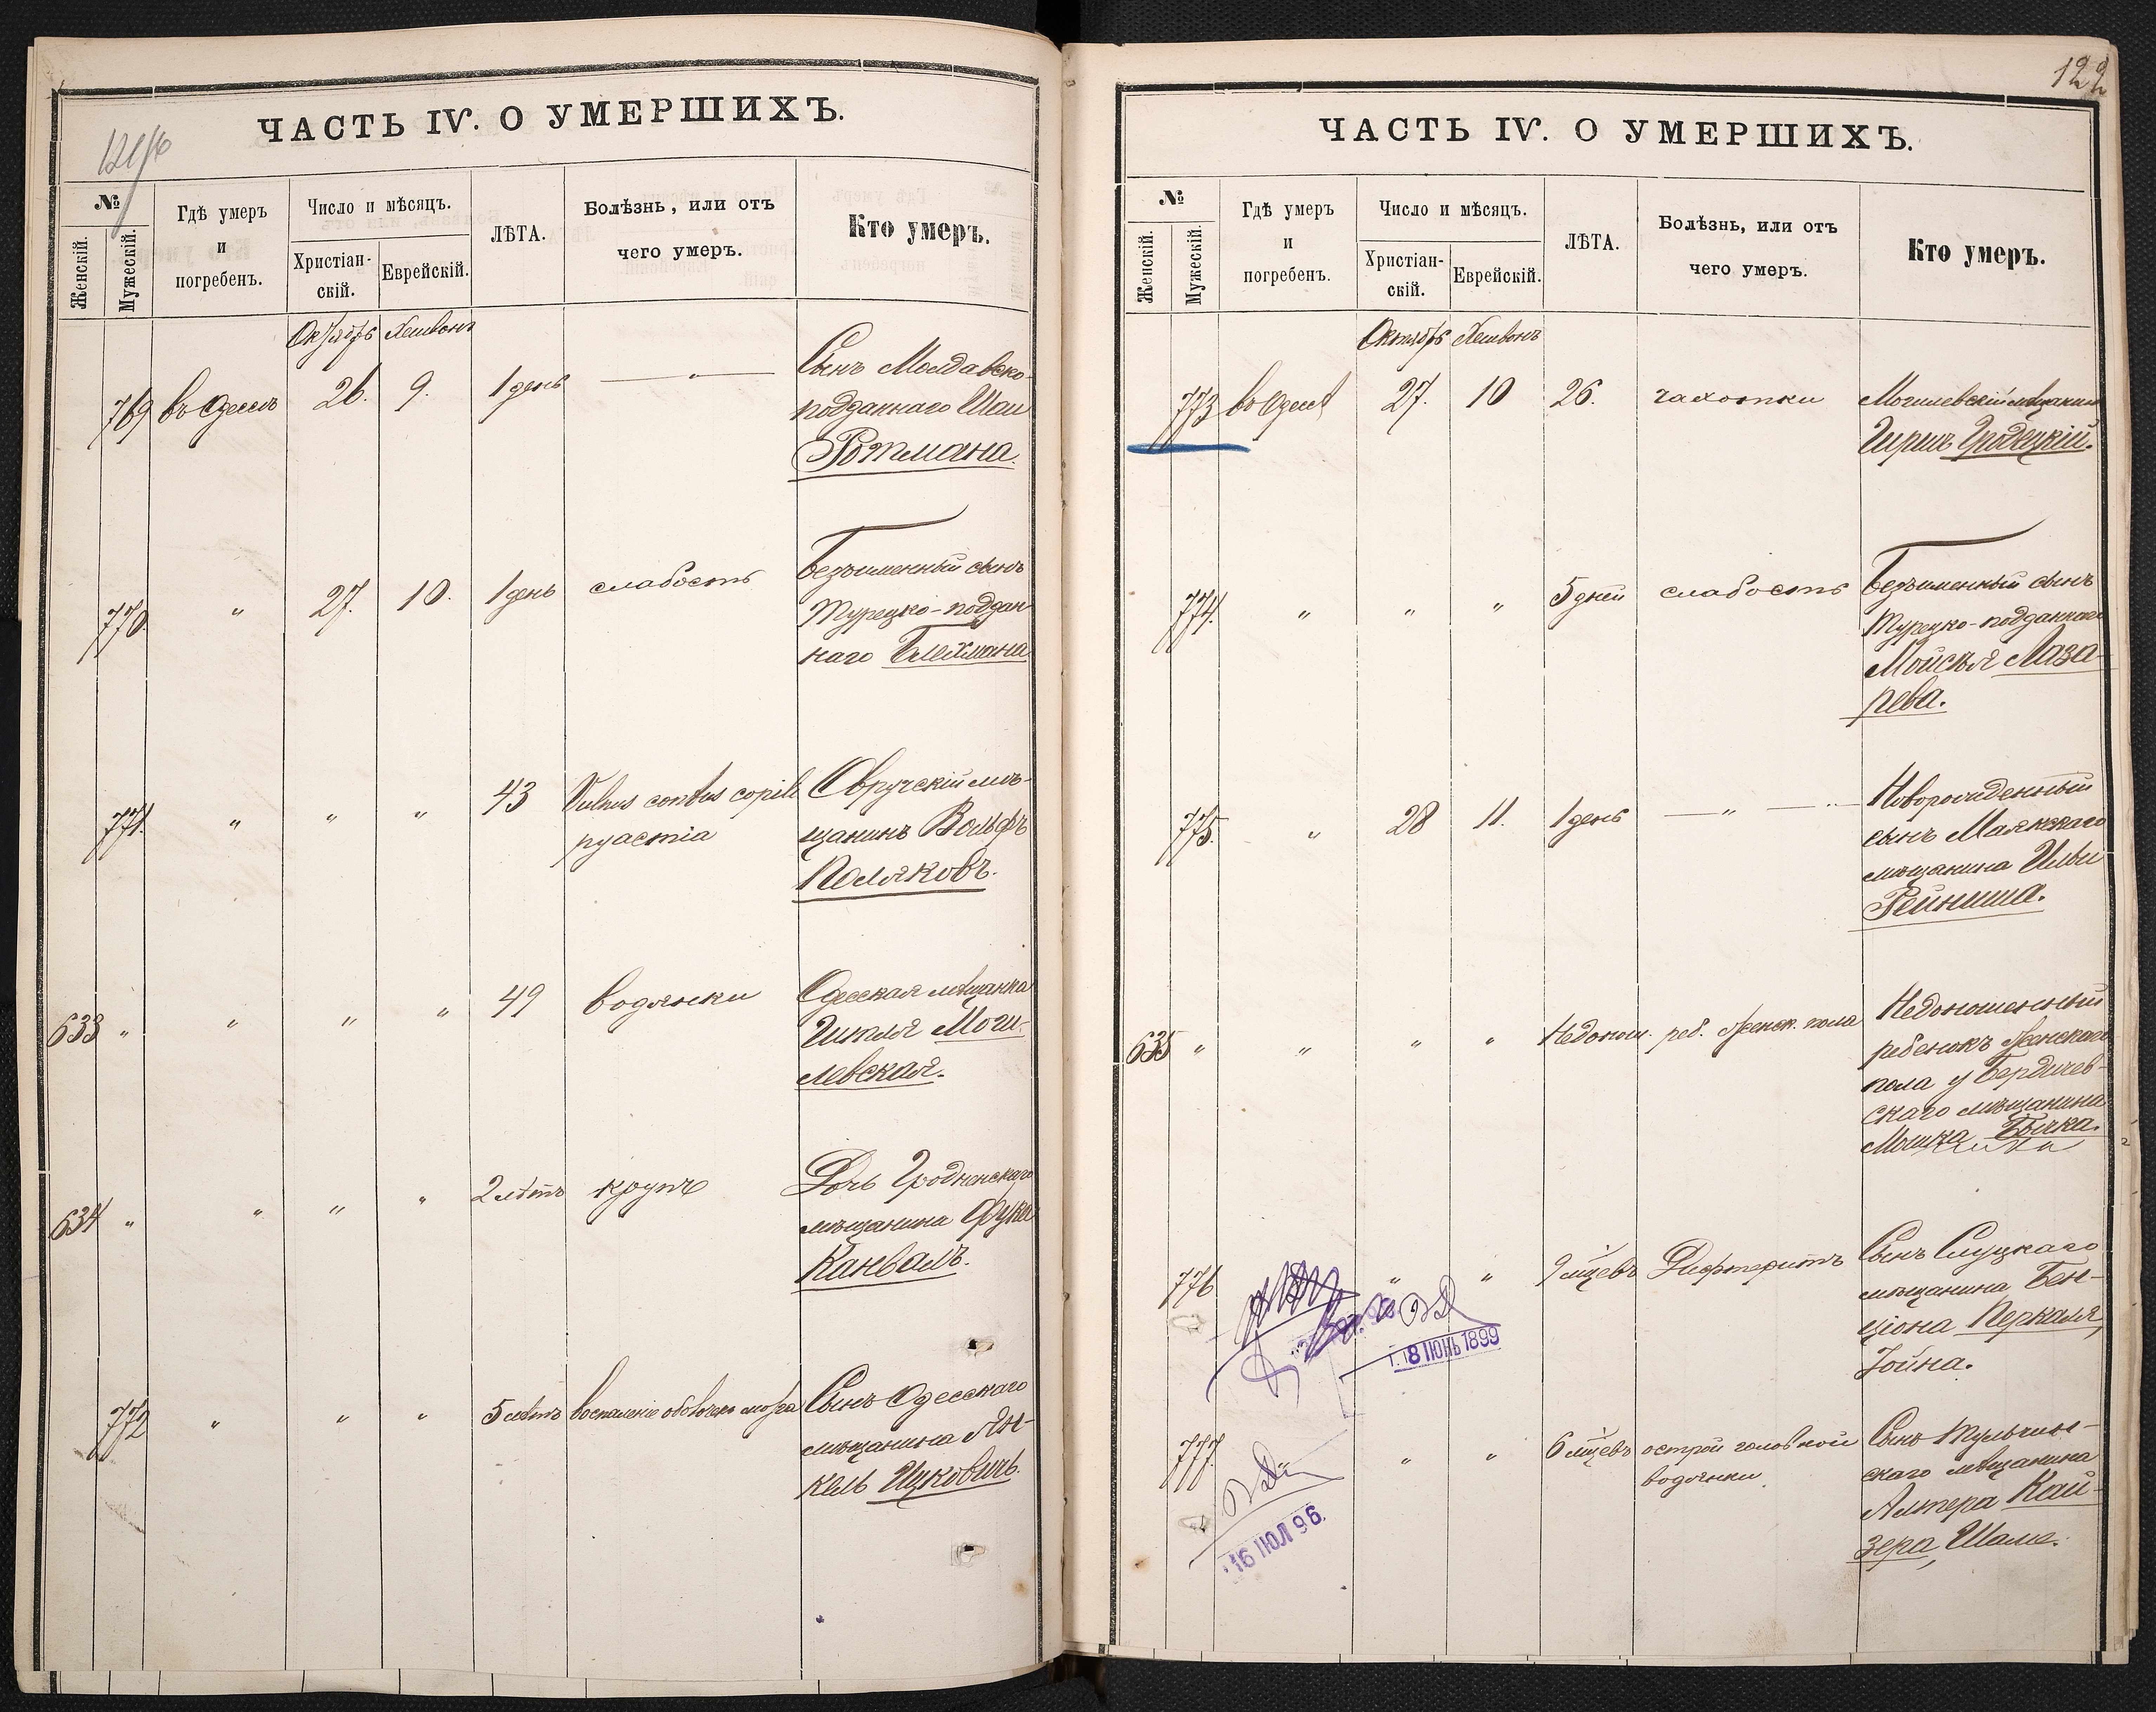 ЧАСТЬ IV. О УМЕРШИХЪ.
№
Женскій.
Мужескій.
Гдѣ умеръ
и
погребенъ.
Число и мѣсяцъ.
Христіан-
скій.
Еврейскій.
ЛѢТА.
Болѣзнь, или отъ
чего умеръ.
Кто умеръ.
Октябрь Хешвонъ
769 въ Одессѣ 26. 9. 1 день — „ —
Сынъ Молдавско-
подданнаго Шаи
Ротмана.
770. „ 27. 10. 1 день слабость
Безъименный сынъ
Турецко-поддан
наго Блехмана
771. „ „ „ 43 Vulnus
Овручскій мѣ-
щанинъ Вольфъ
Поляковъ.
633 „ „ „ „ 49 водянки
Одесская мѣщанка
Моги-
левская.
634 „ „ „ „ 2 лѣтъ крупъ
Дочь Гродненскаго
мѣщанина
Канвалъ.
772 „ „ „ 5 лѣтъ воспаленіе оболочекъ мозга
Сынъ Одесскаго
мѣщанина Ян-
кель Ицковичъ.
122
ЧАСТЬ IV. О УМЕРШИХЪ.
№
Женскій.
Мужескій.
Гдѣ умеръ
и
погребенъ.
Число и мѣсяцъ.
Христіан-
скій.
Еврейскій.
ЛѢТА.
Болѣзнь, или отъ
чего умеръ.
Кто умеръ.
Октябрь Хешвонъ
773 въ Одессѣ 27. 10 26. чахотки
Могилевскій мѣщанинъ
Гиршъ Гродецкій.
774. „ „ „ 5 дней слабость
Безъименный сынъ
Турецко-подданнаго
Мойсѣя Лаза-
рева.
775. „ 28 11. 1 день — „ —
Новорожденный
сынъ Маякскаго
мѣщанина Ильи
Рейниша.
635 „ „ „ „ Недонош. реб. женск. пола
Недоношенный
ребенокъ женскаго
пола у Бердичев-
скаго мѣщанина
Мошка Бычка.
776 „ „ 9 мцевъ Дифтеритъ
Сынъ Слуцкаго
мѣщанина Бен-
ціона Перкаля,
Іойна.
18 ІЮНЬ 1899
777. „ „ 6 мцевъ острой головной
водянки.
Сынъ Тульчин-
скаго мѣщанина
Алтера Кай-
зера, Шама.
16 ІЮЛ 96.